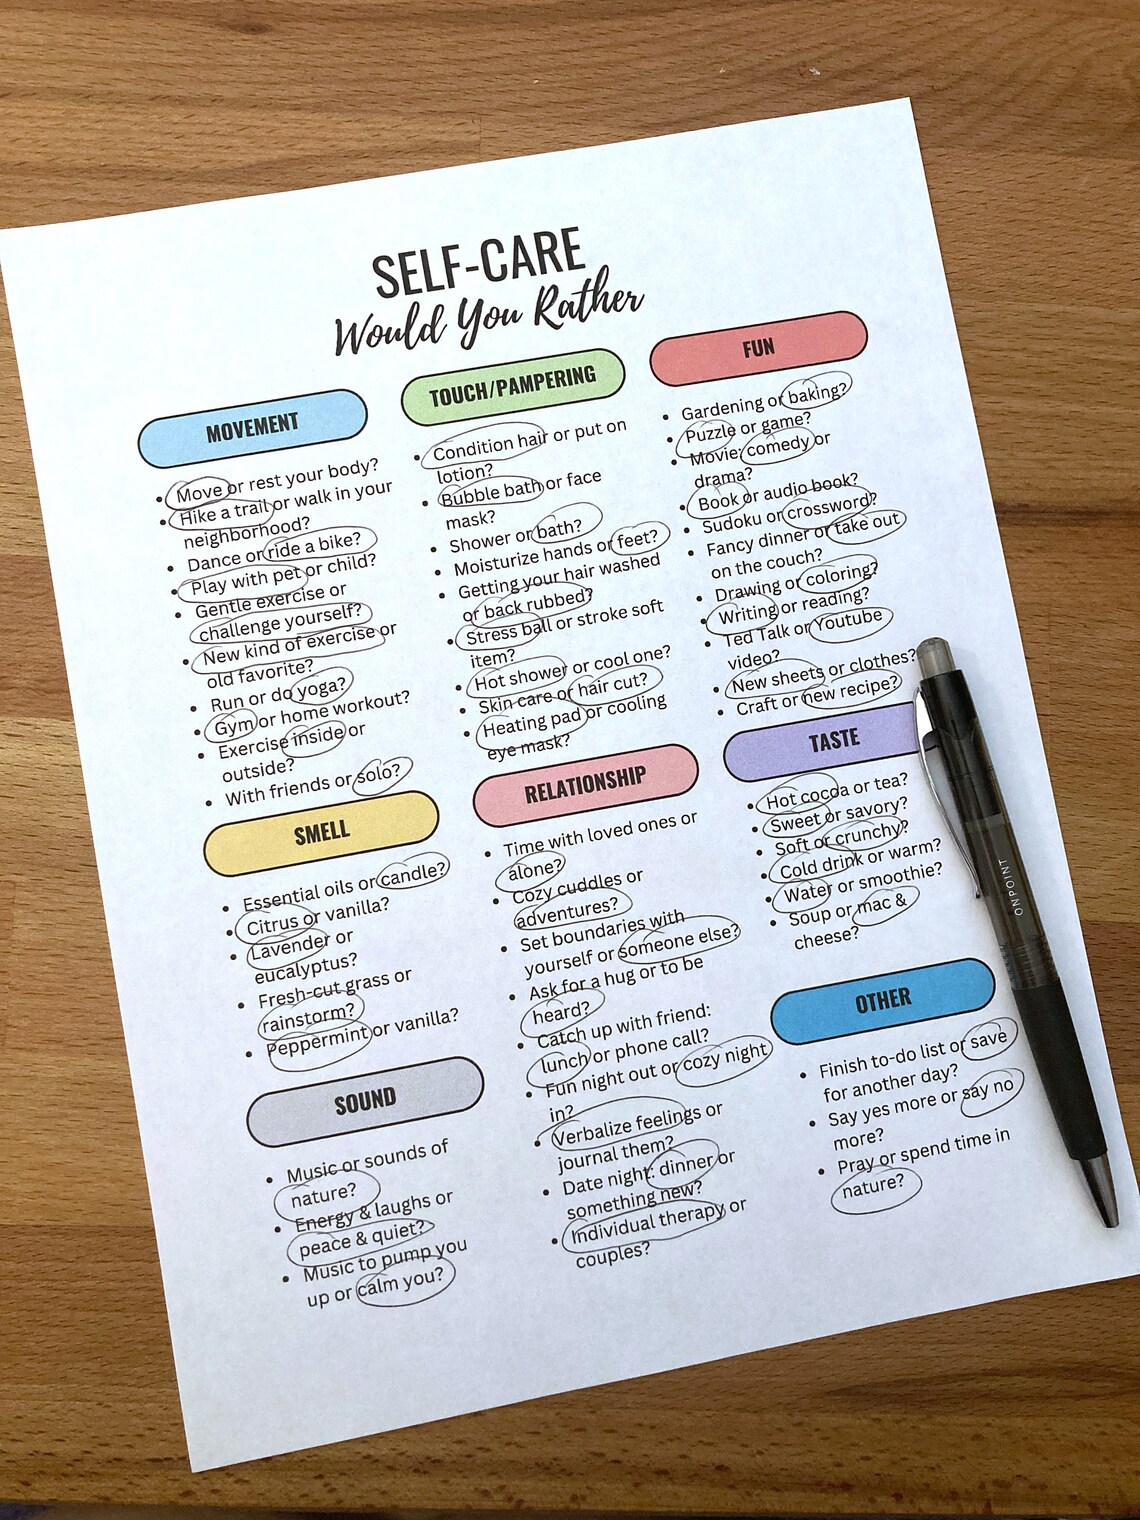 SELF-CARE
Would You Rather
MOVEMENT
Move or rest your body?
Hike a trail or walk in your
neighborhood?
Dance or ride a bike?
Play with pet or child?
Gentle exercise or
challenge yourself?
New kind of exercise or
old favorite?
Run or do yoga?
Gym or home workout?
Exercise inside or
outside?
With friends or solo?
TOUCH/PAMPERING
Condition hair or put on
lotion?
Bubble bath or face
mask?
Shower or bath?
Moisturize hands or feet?
Getting your hair washed
or back rubbed?
Stress ball or stroke soft
item?
Hot shower or cool one?
Skin care or hair cut?
Heating pad or cooling
eye mask?
FUN
Gardening or baking?
Puzzle or game?
Movie: comedy or
drama?
Book or audio book?
Sudoku or crossword?
Fancy dinner or take out
on the couch?
Drawing or coloring?
Writing or reading?
Ted Talk or Youtube
video?
New sheets or clothes?
Craft or new recipe?
SMELL
Essential oils or candle?
Citrus or vanilla?
Lavender or
eucalyptus?
Fresh-cut grass or
rainstorm?
Peppermint or vanilla?
RELATIONSHIP
Time with loved ones or
alone?
Cozy cuddles or
adventures?
Set boundaries with
yourself or someone else?
Ask for a hug or to be
heard?
Catch up with friend:
lunch or phone call?
Fun night out or cozy night
in?
Verbalize feelings or
journal them?
Date night: dinner or
something new?
Individual therapy or
couples?
TASTE
Hot cocoa or tea?
Sweet or savory?
Soft or crunchy?
Cold drink or warm?
Water or smoothie?
Soup or mac &
cheese?
SOUND
Music or sounds of
nature?
Energy & laughs or
peace & quiet?
Music to pump you
up or calm you?
OTHER
Finish to-do list or save
for another day?
Say yes more or say no
more?
Pray or spend time in
nature?
ONPOINT